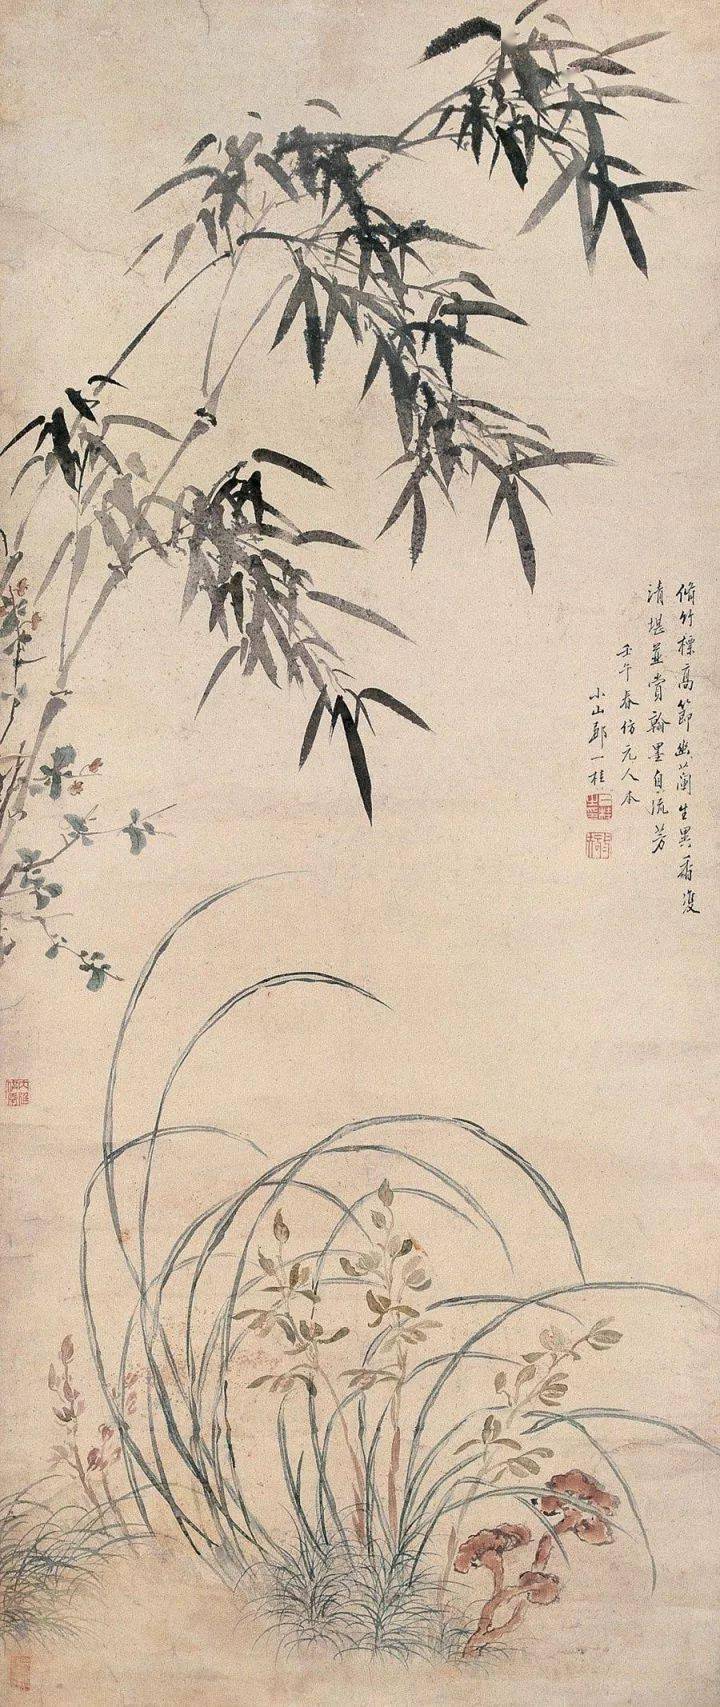 脩竹標高節幽蘭生異香雙
清堪並賞翰墨自流芳
壬午春仿元人本
小山鄒一桂